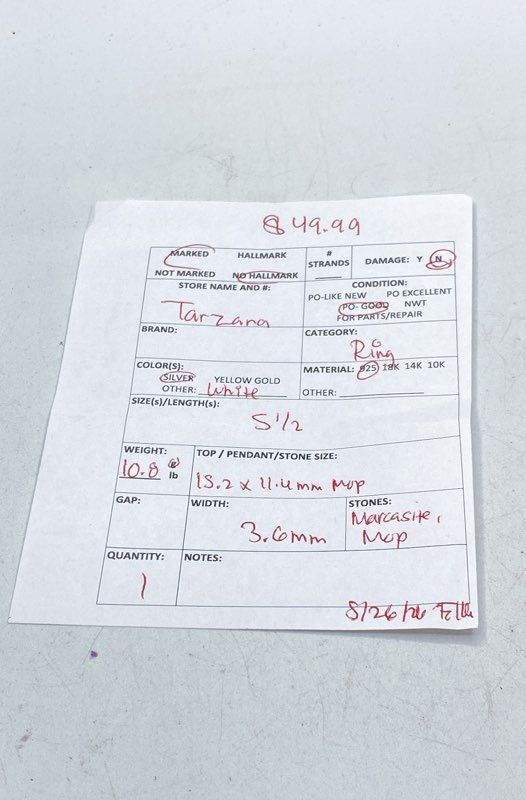 $ 49.99
MARKED HALLMARK
NOT MARKED NO HALLMARK
# STRANDS ____
DAMAGE: Y N
STORE NAME AND #:
Tarzana
CONDITION:
PO-LIKE NEW PO EXCELLENT
PO- GOOD NWT
FOR PARTS/REPAIR
BRAND:
CATEGORY:
Ring
COLOR(S):
SILVER YELLOW GOLD
OTHER: White
MATERIAL: 925 18K 14K 10K
OTHER: ____
SIZE(s)/LENGTH(s):
5 1/2
WEIGHT:
10.8 g
lb
TOP / PENDANT/STONE SIZE:
15.2 x 11.4mm Mop
GAP:
WIDTH:
3.6mm
STONES:
Marcasite,
Mop
QUANTITY:
1
NOTES: